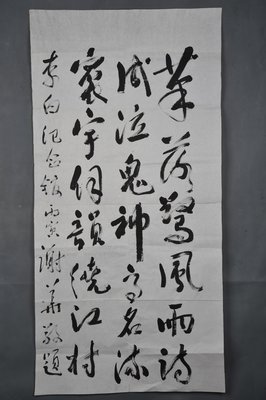 笔落惊风雨诗
成泣鬼神高名流
寰宇何韵绕江村
李白纪念馆 谢华敬题